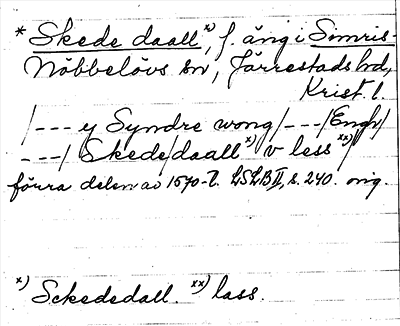 * Skede daall x), f. äng i Simris-
Nöbbelövs sn, Järrestads hd,
Krist. l.
/--- y Syndre wong/---/Engh/
---/ Skede/daall x) v less xx)/
förra delen av 1570-t. LSLB II, s. 240. orig.
x) Sckededall. xx) lass.